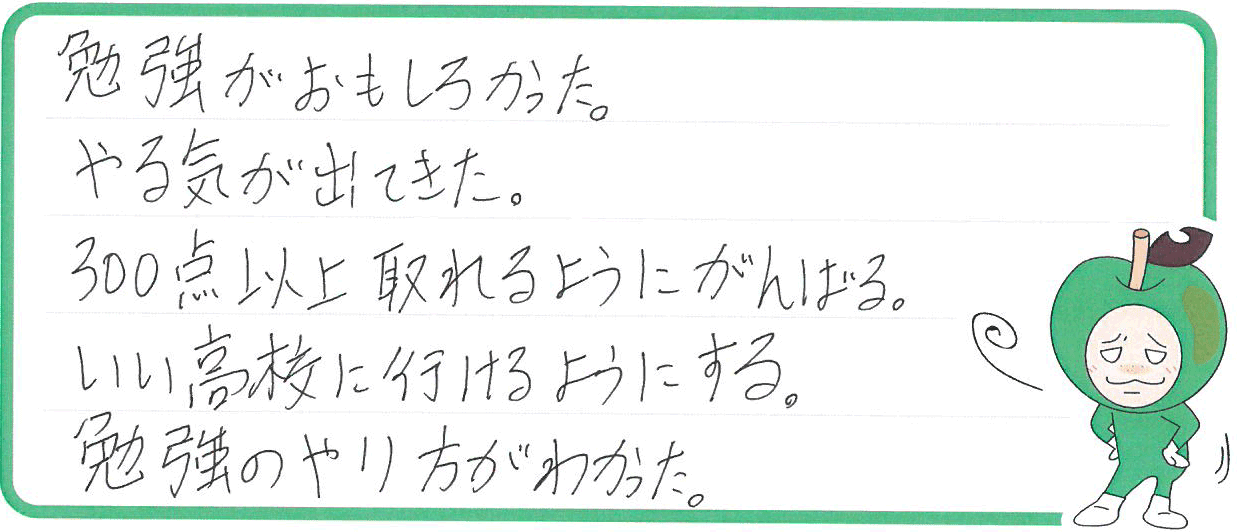 勉強がおもしろかった。
やる気が出てきた。
300点以上取れるようにがんばる。
いい高校に行けるようにする。
勉強のやり方がわかった。